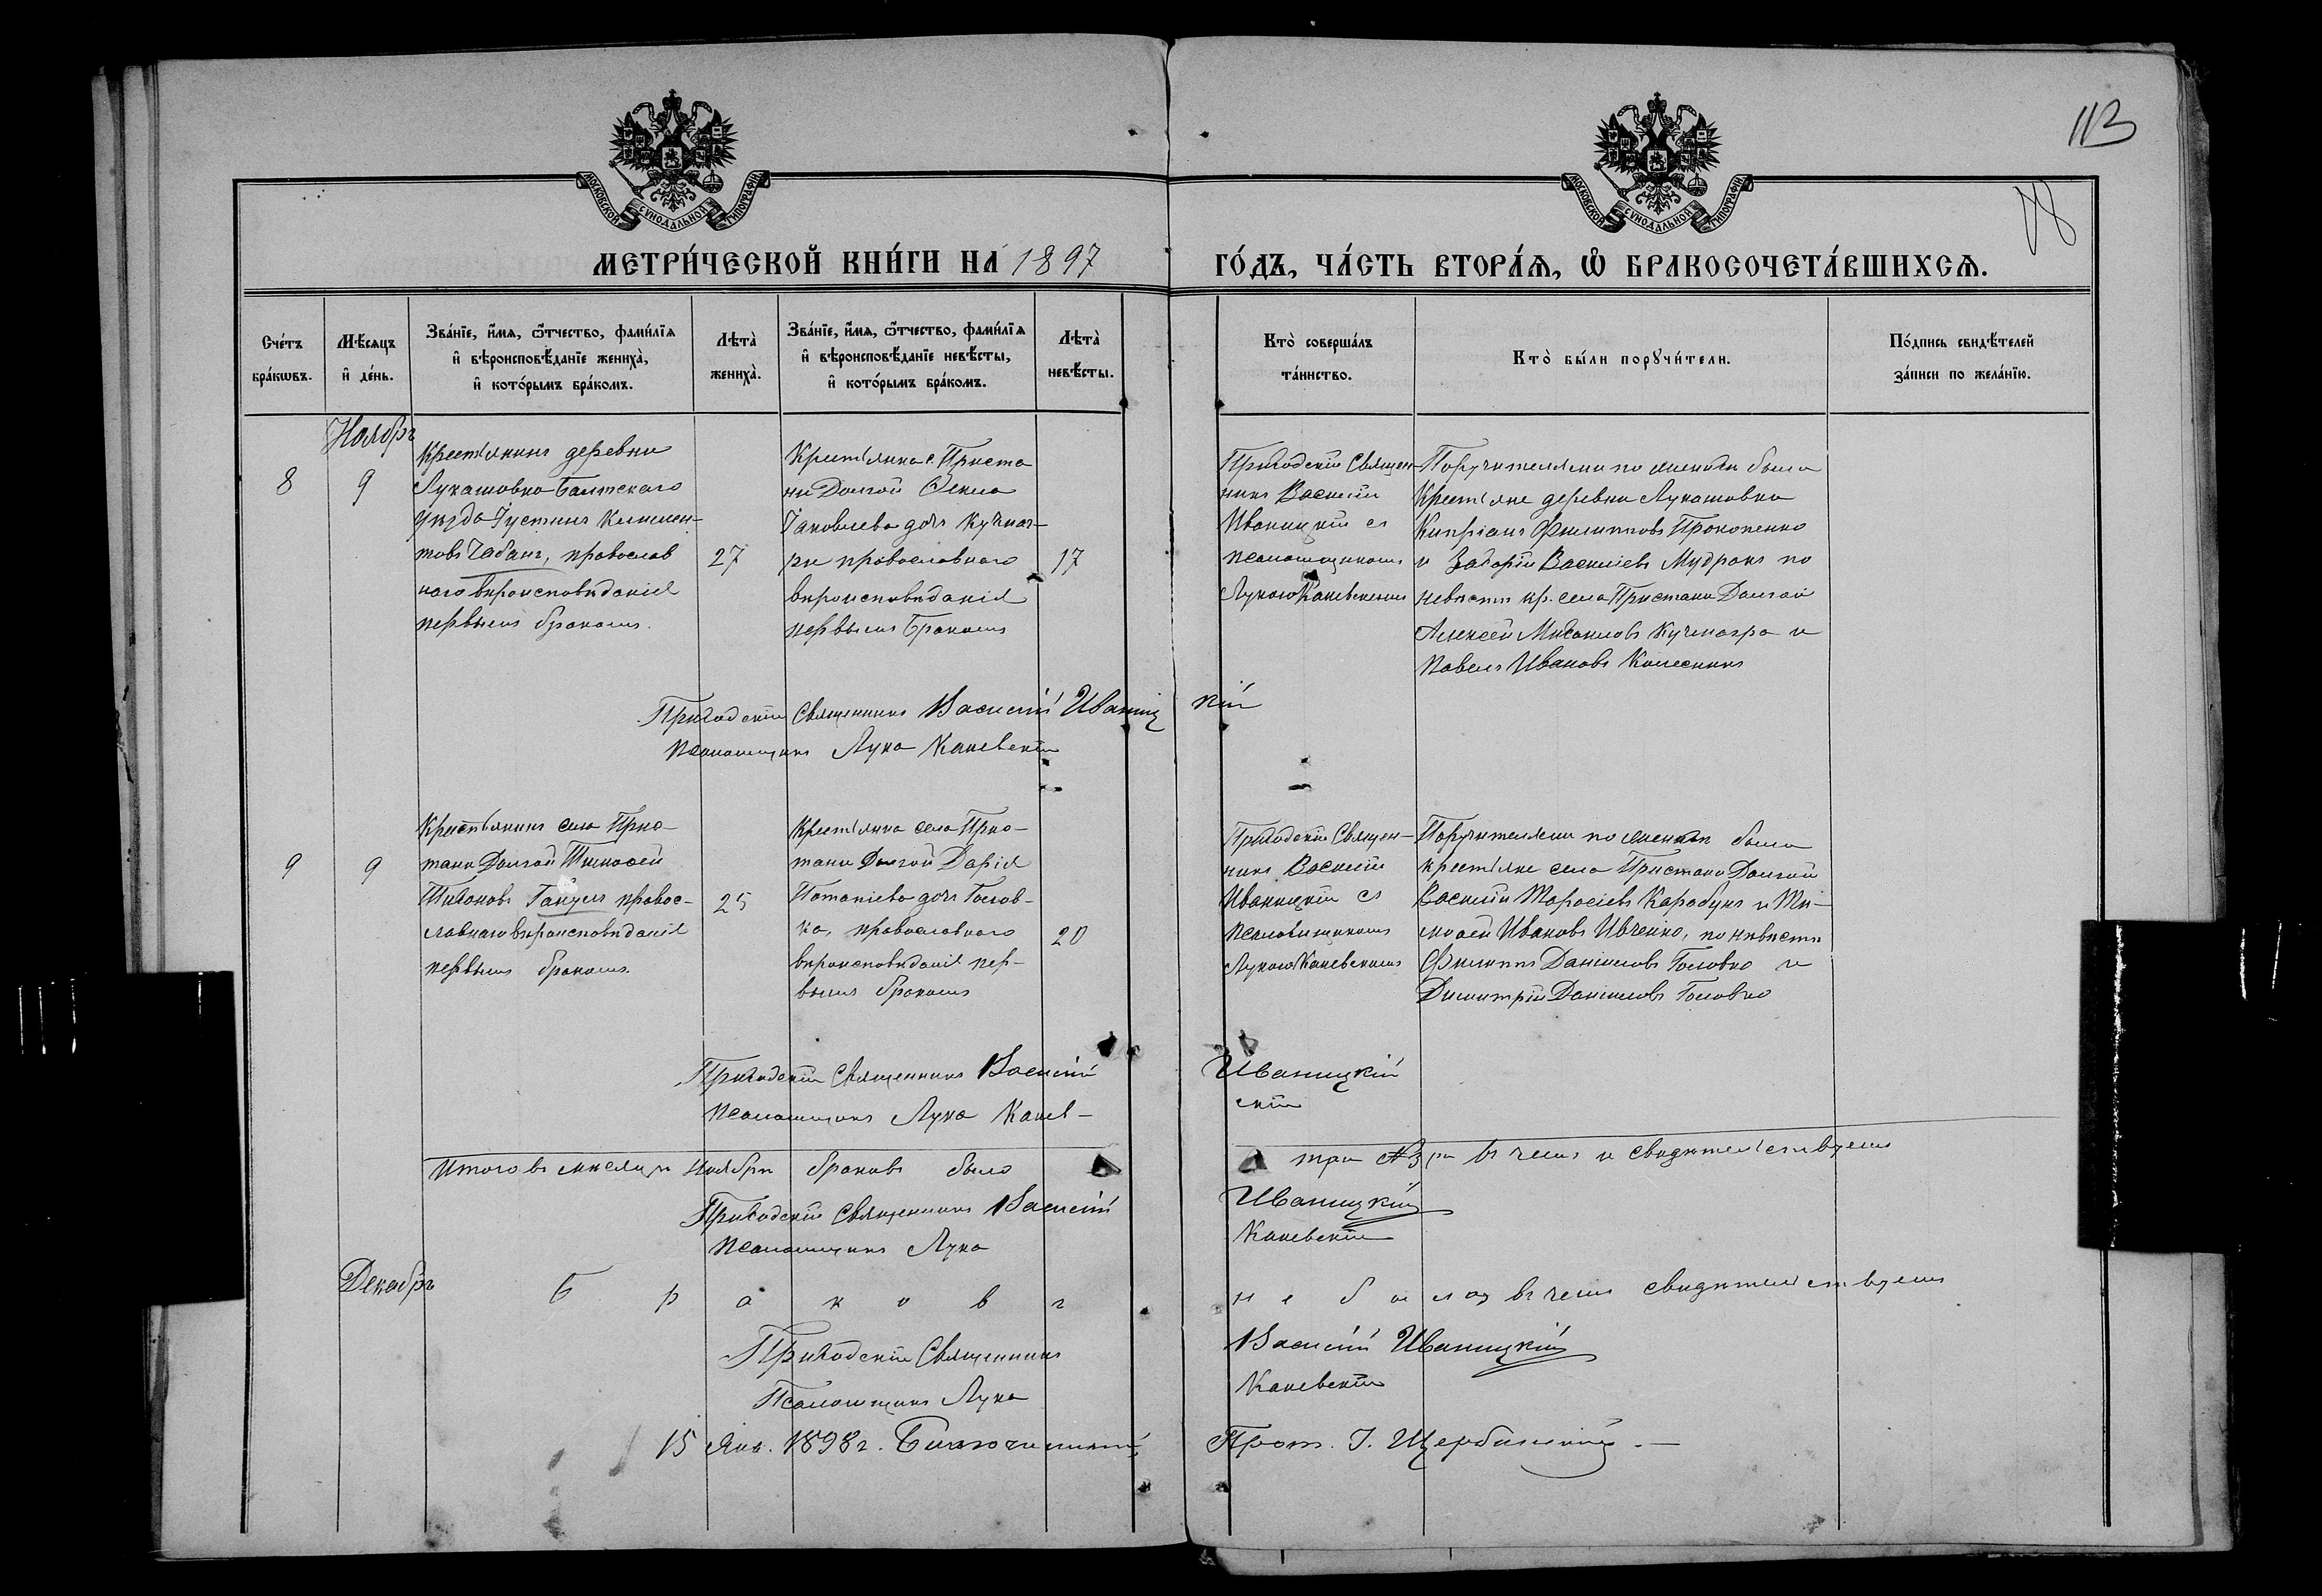 113
78
МОСКОВСКОЙ СѴНОДАЛЬНОЙ ТИПОГРАФІИ
МОСКОВСКОЙ СѴНОДАЛЬНОЙ ТИПОГРАФІИ
МЕТРИ́ЧЕСКОЙ КНИ́ГИ НА 1897
ГО́ДЪ, ЧА́СТЬ ВТОРА́Я, Ѽ БРАКОСОЧЕТА́ВШИХСЯ.
Сче́тъ
бра́кѡвъ.
Мѣ́сяцъ
и҆ де́нь.
Зва́нїе, и҆́мя, ѻ҆́тчество, фами́лїя
и҆ вѣроисповѣ́данїе жениха̀,
и҆ кото́рымъ бра́комъ.
Лѣта̀
жениха̀.
Зва́нїе, и҆́мя, ѻ҆́тчество, фами́лїя
и҆ вѣроисповѣ́данїе невѣ́сты,
и҆ кото́рымъ бра́комъ.
Лѣта̀
невѣ́сты.
Кто̀ соверша́лъ
та́инство.
Кто̀ бы́ли порꙋчи́тели.
По́дпись свидѣ́телей
за́писи по жела́нїю.
Ноябрь
8
9
Крестьянинъ деревни
Лукашовка Балтскаго
уѣзда Іустинъ Климен-
товъ Чабанъ, православ
наго вѣроисповѣданія
первымъ бракомъ.
27
Крестьянка с. Приста
ни Долгой Ѳекла
Іаковлева дочь Кучмаг-
ри православнаго
вѣроисповѣданія
первымъ бракомъ
17
Приходскій Священ-
никъ Василій
Иваницкій съ
псаломщикомъ
Лукою Каневскимъ
Поручителями по женихѣ были
Крестьяне деревни Лукашовка
Кипріанъ Филипповъ Прокопенко
и Захарій Василіевъ Мудракъ по
невѣстѣ кр. села Пристани Долгой
Алексѣй Михаиловъ Кучмагра и
Павелъ Ивановъ Колесникъ
Приходскій Священникъ Василій Иваниц кій
Псаломщикъ Лука Каневскій
9
9
Крестьянинъ села При-
стани Долгой Тимофей
Тихоновъ Ганулъ правос-
лавнаго вѣроисповѣданія
первымъ бракомъ.
25
Крестьянка села При-
стани Долгой Дарія
Потапіева дочь Голов-
ка, православнаго
вѣроисповѣданія пер-
вымъ бракомъ
20
Приходскій Священ-
никъ Василій
Иваницкій съ
псаломщикомъ
Лукою Каневскимъ
Поручителями по женихѣ были
крестьяне села Пристани Долгой
Василій Тарасіевъ Карабунъ и Ти-
мофей Ивановъ Ивченко, по невѣстѣ
Филиппъ Даніиловъ Головко и
Димитрій Даніиловъ Головко
Приходскій Священникъ Василій Иваницкій
Псаломщикъ Лука Канев- скій
Итого въ мѣсяцѣ Ноябрѣ браковъ было три №3 въ чемъ и свидѣтельствуемъ
Приходскій Священникъ Василій Иваницкій
Псаломщикъ Лука Каневскій
Декабрь Браковъ не было, въ чемъ свидѣтельствуемъ
Приходскій Священникъ Василій Иваницкій
Псаломщикъ Лука Каневскій
15 Янв. 1898 г. Благочинный, Прот. І. Щербинскій.